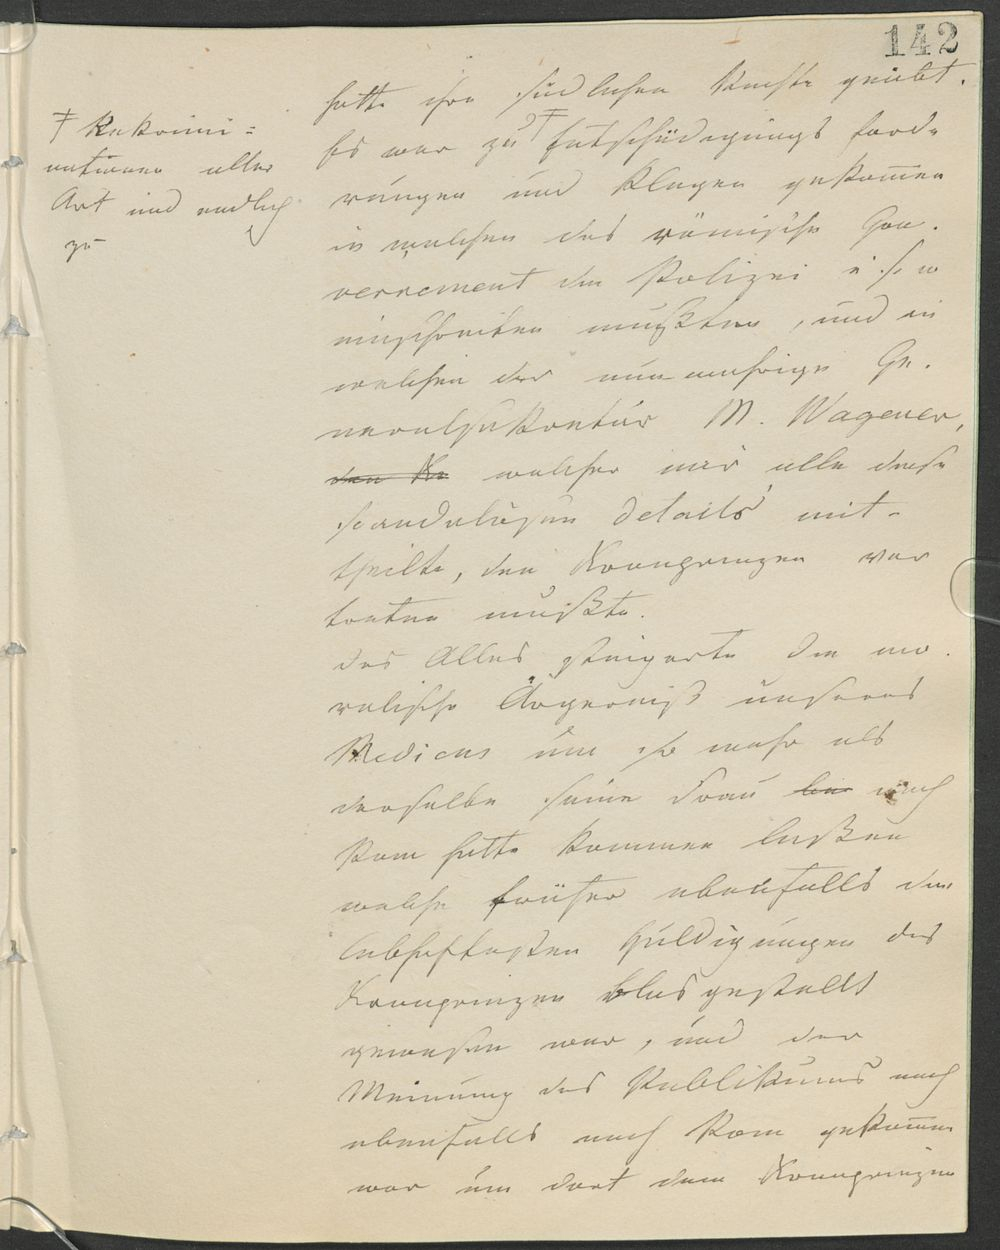 142
hatte ihre südlichen Künste geübt.
Es war zu ‡ Entschädigungs forde
‡ Rekrimi=
nationen aller
Art und endlich
zu
rungen und Klagen gekom̄en
in welchen das römische Gou.
vernement die Polizei u s w
einschreiten mußten, und in
welchen der nunmehrige Ge.
neralsekretär M. Wagener,
den Kr welcher mir alle diese
scandalösen Details mit-
theilte, den Kronprinzen ver
treten mußte.
das Alles steigerte die mo.
ralische Ärgerniß unseres
Medicus um so mehr als
derselbe seine Frau hin nach
Rom hatte kommen laßen
welche früher ebenfalls den
lebhaftesten Huldigungen des
Kronprinzen blosgestellt
gewesen war, und der
Meinung des Publikums nach
ebenfalls nach Rom gekom̄en
war um dort dem Kronprinzen